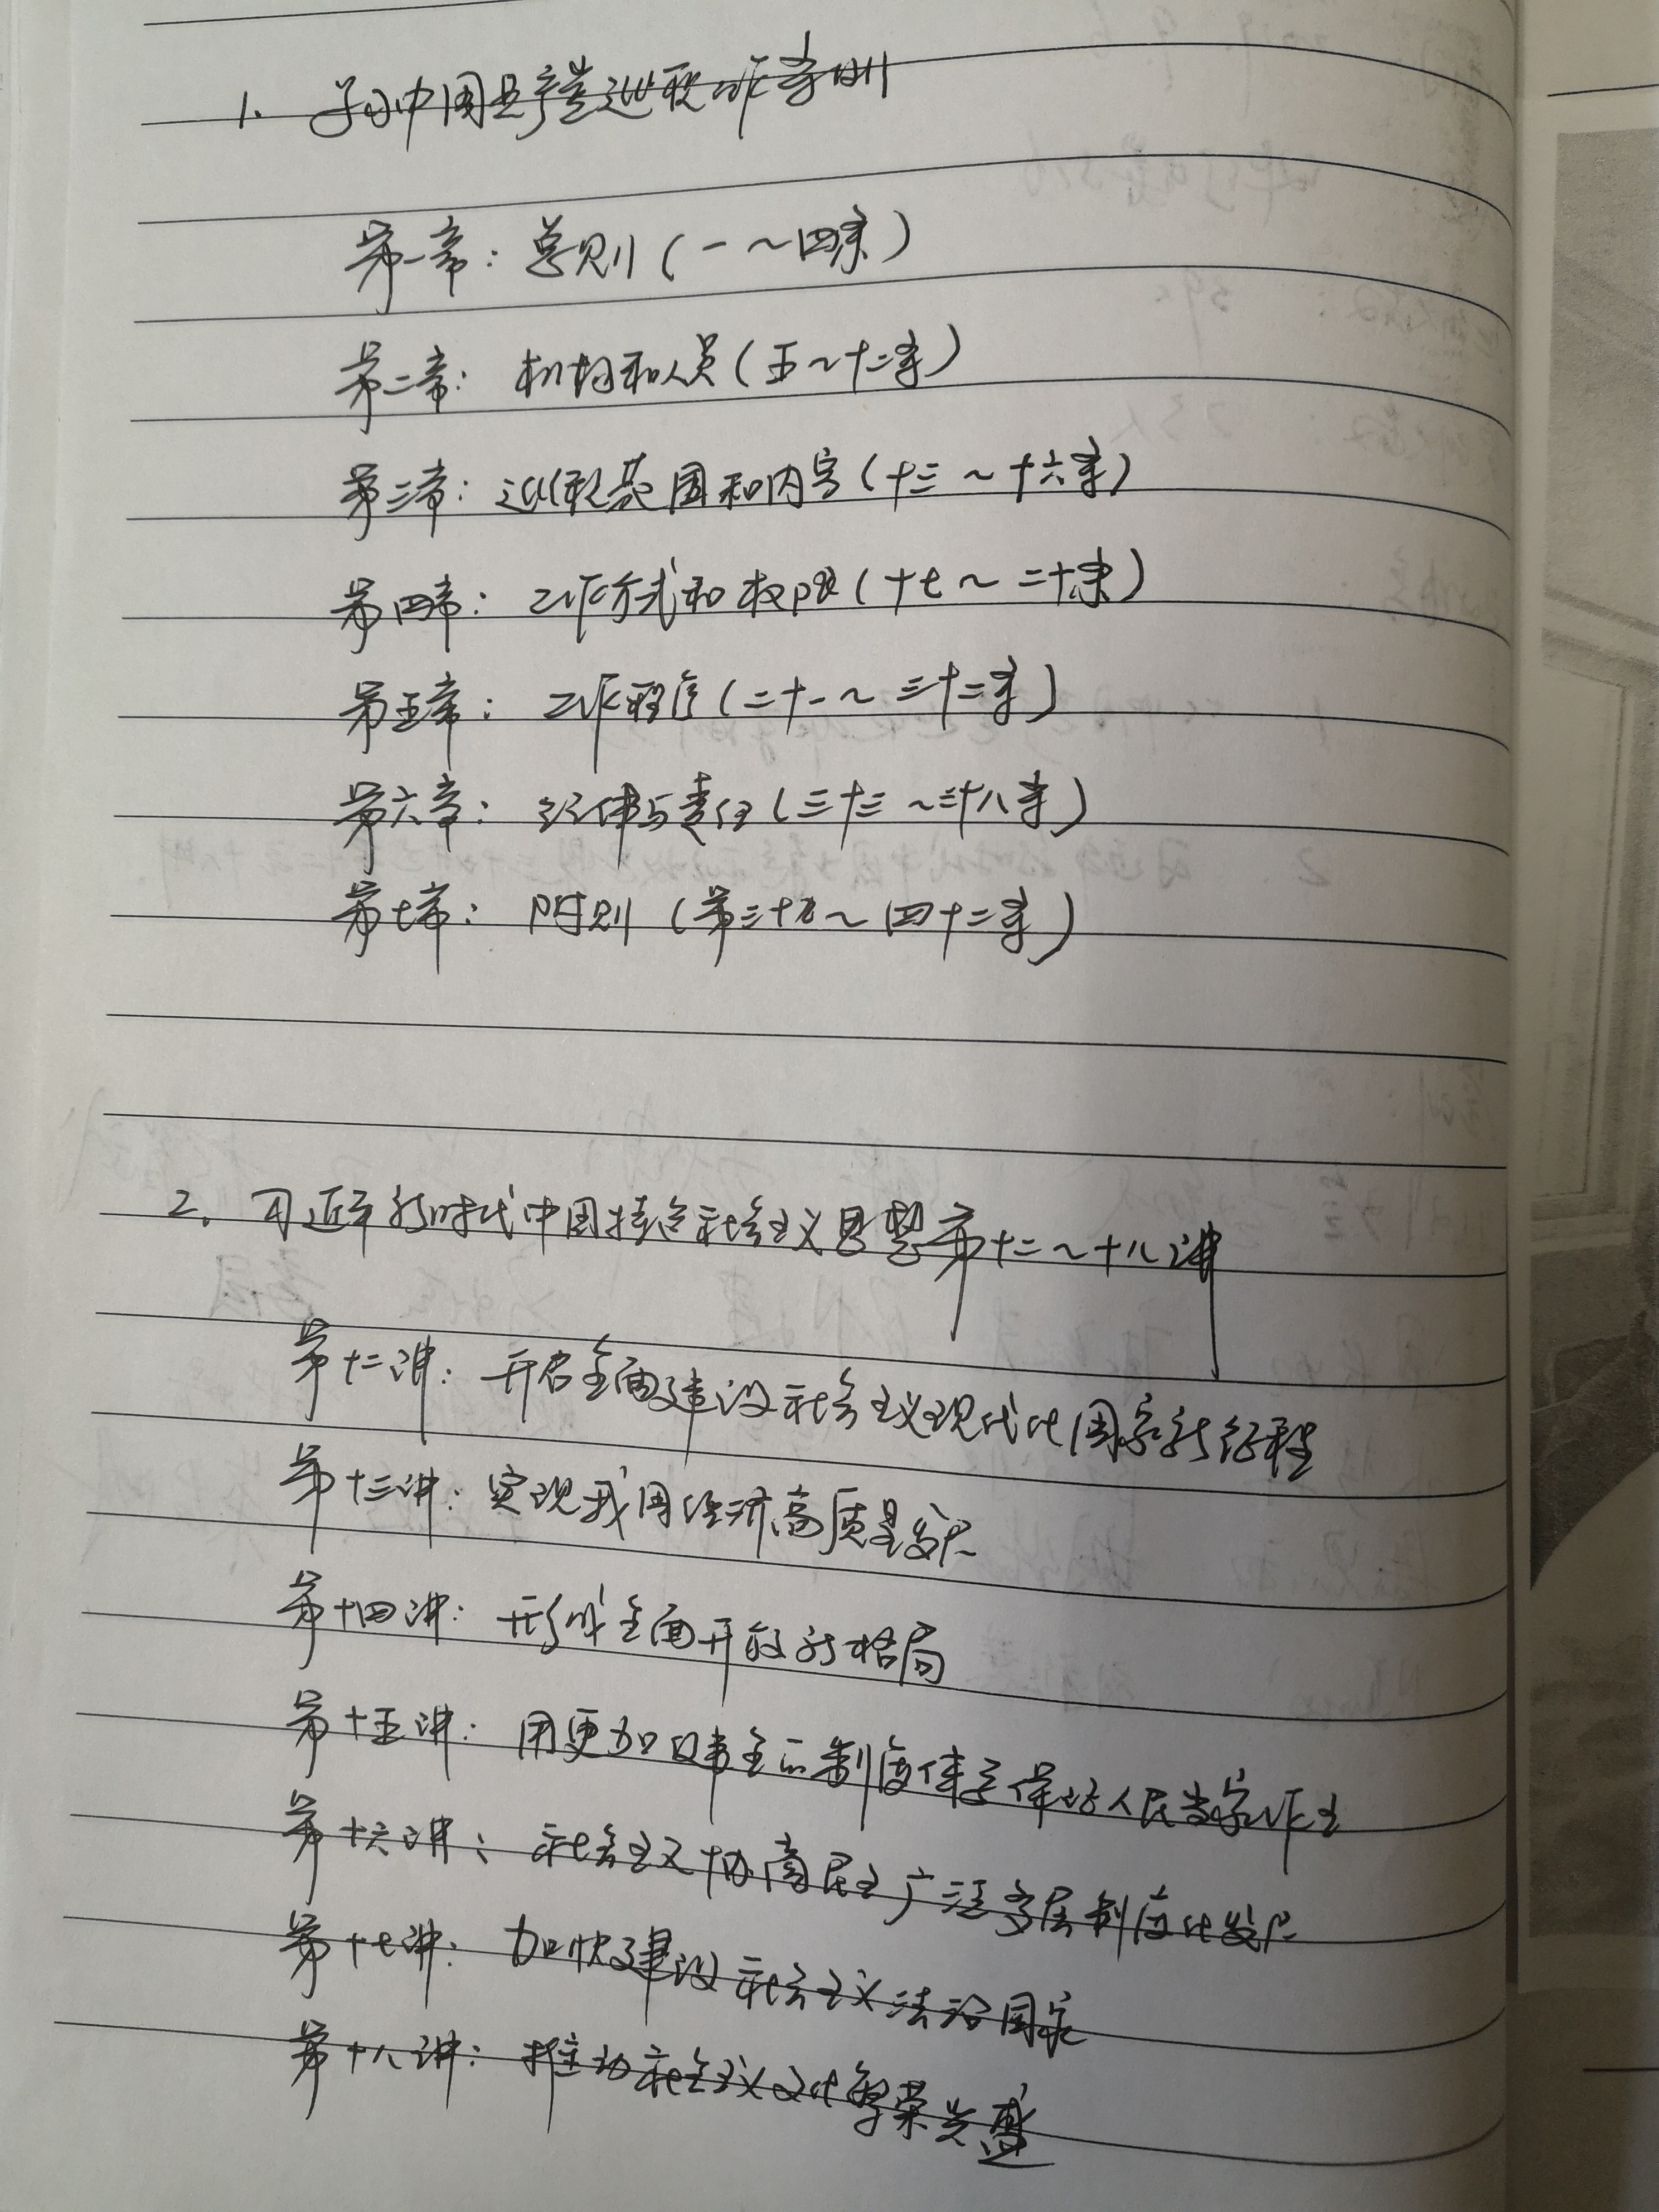 1. 学习中国共产党巡视工作条例
第一章：总则（一～四条）
第二章：机构和人员（五～十二条）
第三章：巡视范围和内容（十三～十六条）
第四章：工作方式和权限（十七～二十条）
第五章：工作程序（二十一～三十二条）
第六章：纪律与责任（三十三～三十八条）
第七章：附则（第三十九～四十二条）
2. 习近平新时代中国特色社会主义思想第十二～十八讲
第十二讲：开启全面建设社会主义现代化国家新征程
第十三讲：实现我国经济高质量发展
第十四讲：形成全面开放新格局
第十五讲：用更加健全的制度体系保障人民当家作主
第十六讲：社会主义协商民主广泛多层制度化发展
第十七讲：加快建设社会主义法治国家
第十八讲：推动社会主义文化繁荣兴盛